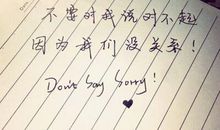 不要对我说对不起
因为我们没关系！
Don't Say Sorry!